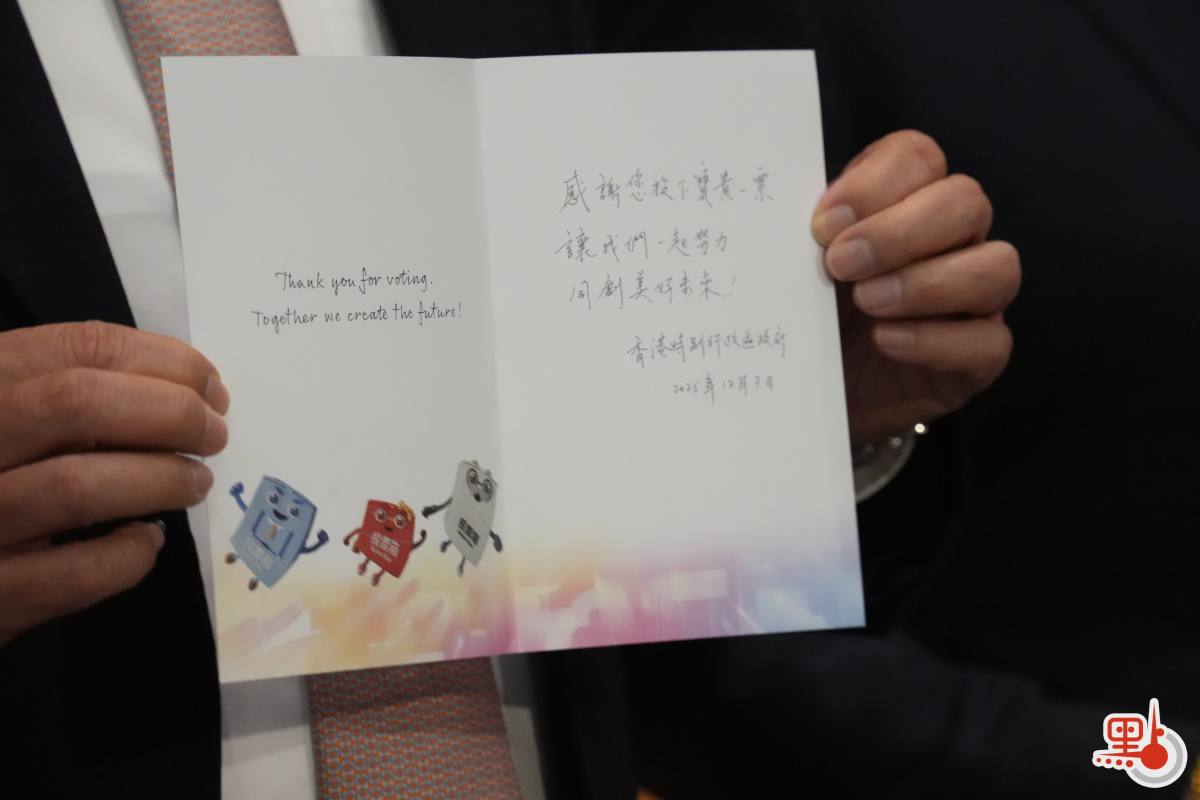 Thank you for voting.
Together we create the future!
感謝您投下寶貴一票
讓我們一起努力
同創美好未來！
香港特別行政區政府
2025年12月7日
投票箱
投票箱
點